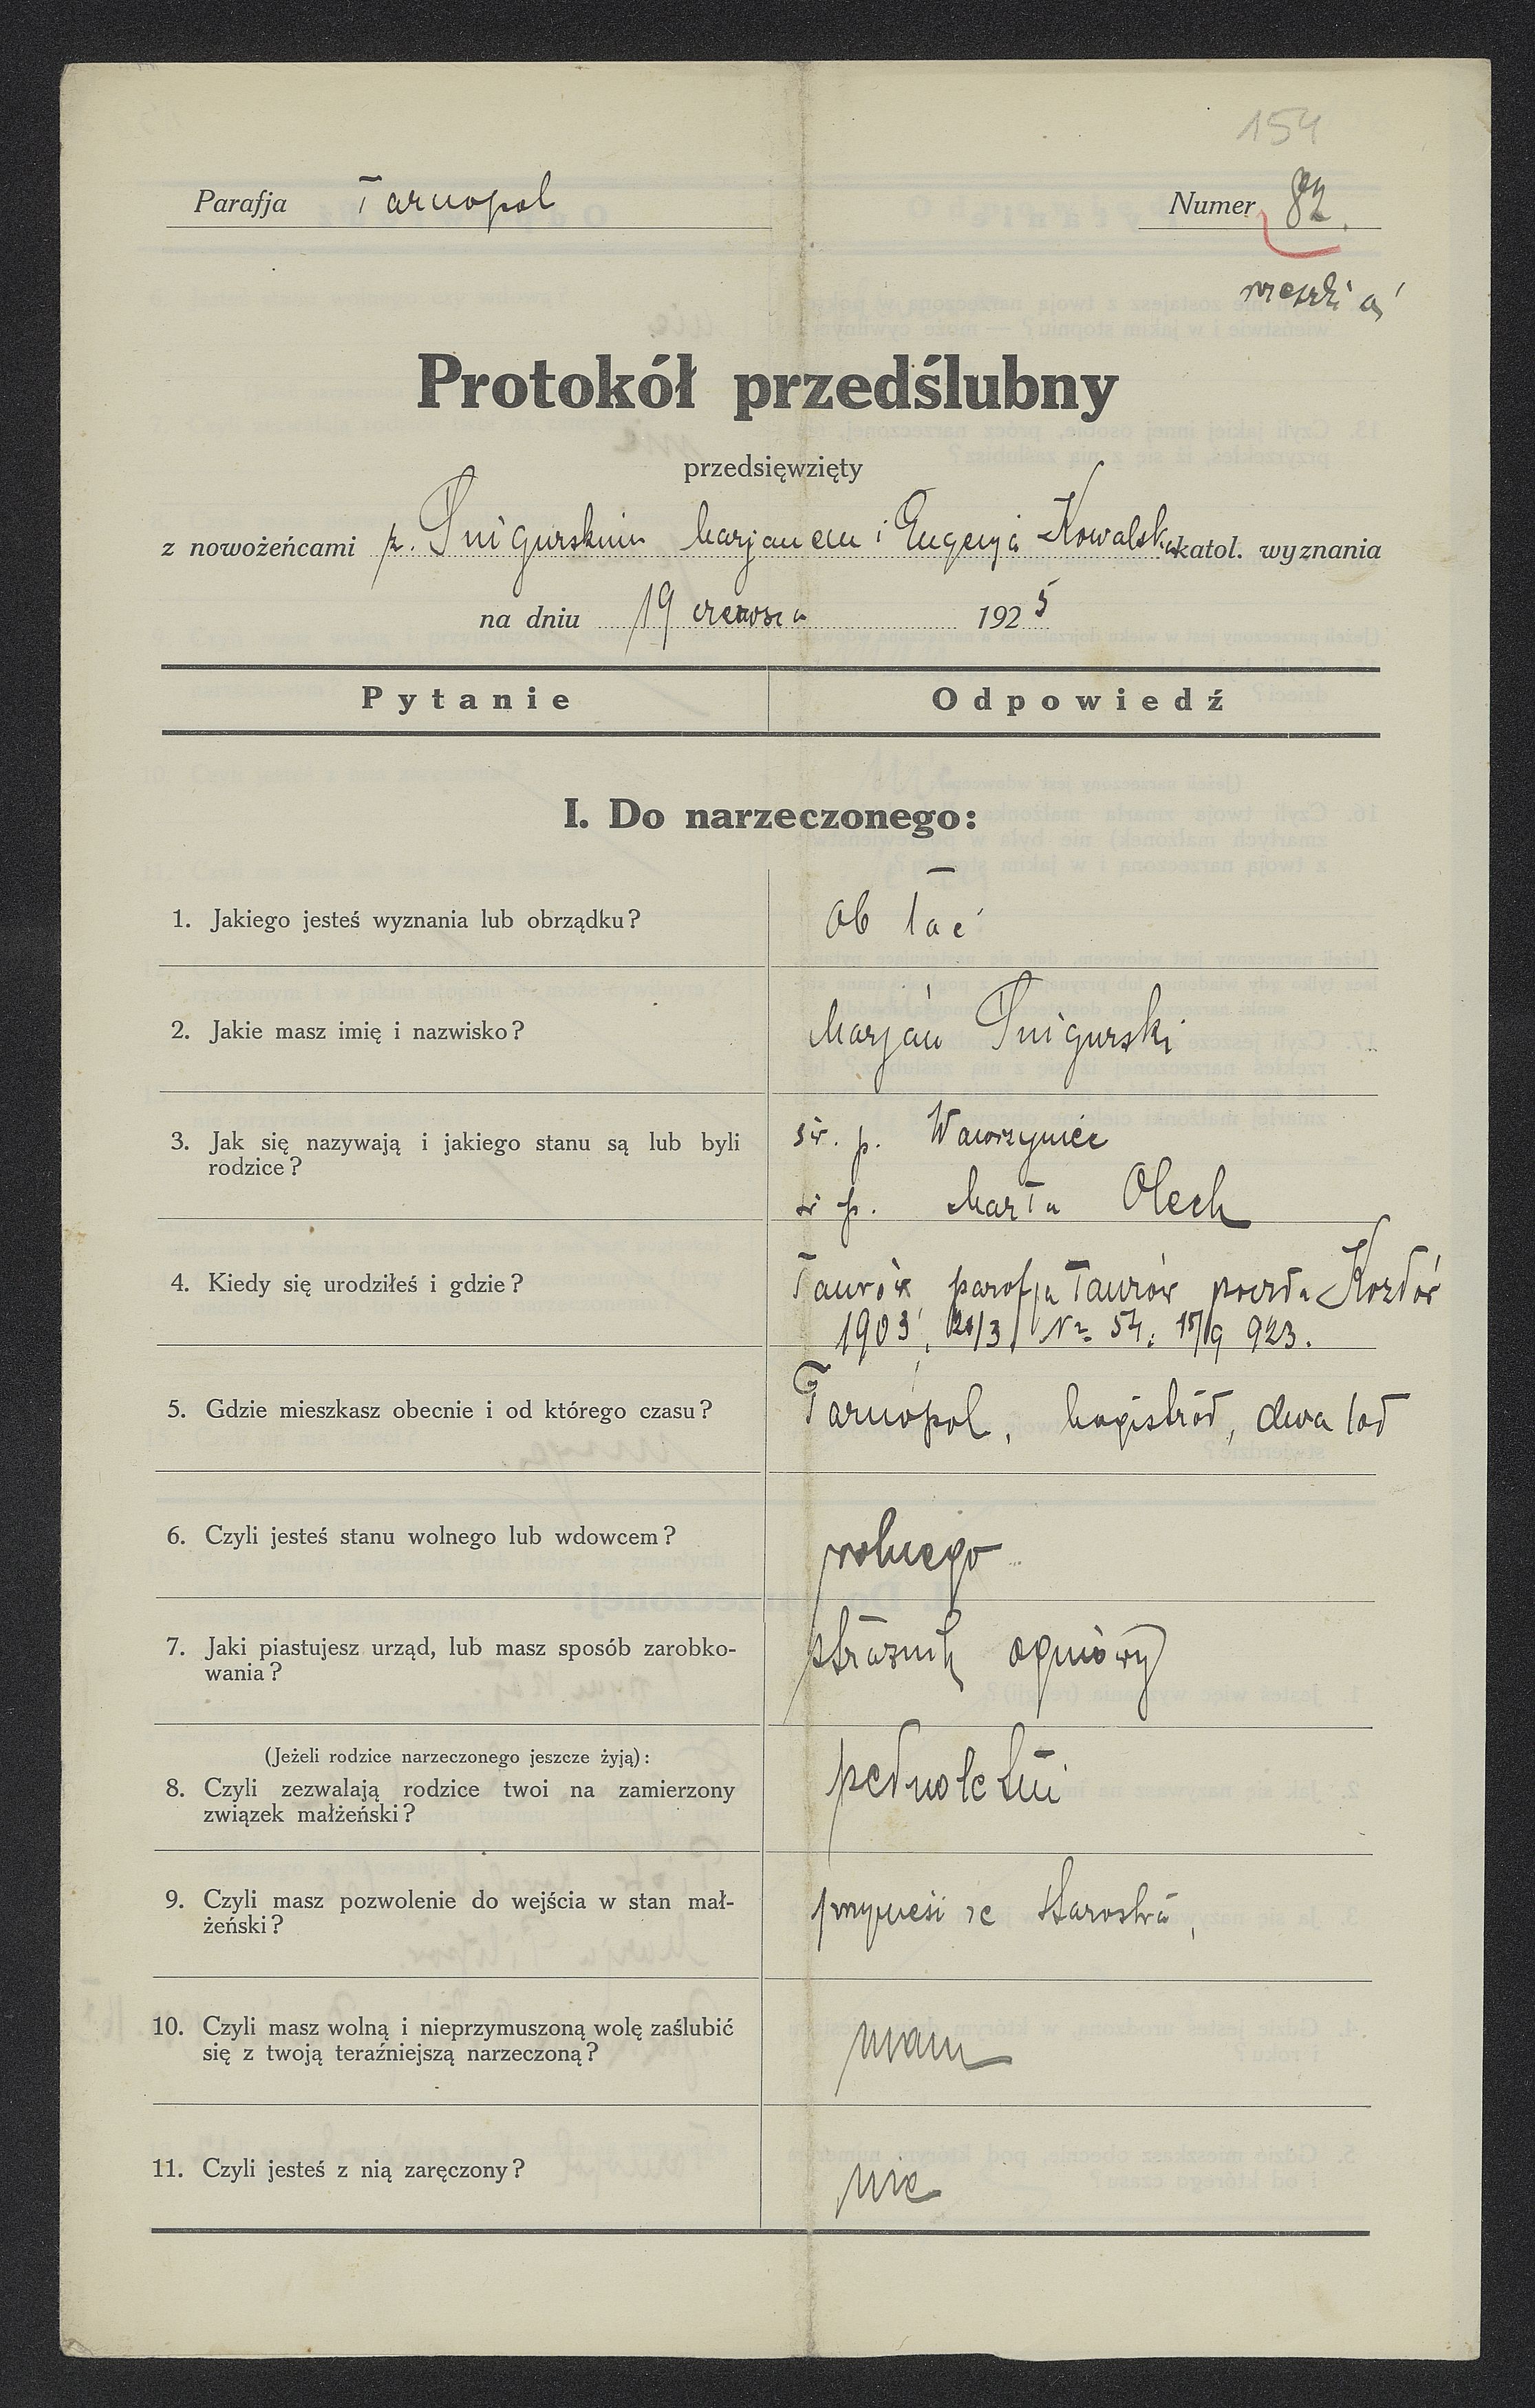 154
Parafja Tarnopol
Numer 82.
Protokół przedślubny
przedsięwzięty
z nowożeńcami p. Śnigurskim Marjanem i Eugenją Kowalską katol. wyznania
na dniu 19 czerwca 1925
Pytanie Odpowiedź
I. Do narzeczonego:
1. Jakiego jesteś wyznania lub obrządku? ob łać
2. Jakie masz imię i nazwisko? Marjan Śnigurski
3. Jak się nazywają i jakiego stanu są lub byli
rodzice?
śr. p. Wawrzyniec
śr p. Marta Olech
4. Kiedy się urodziłeś i gdzie?
Taurów parafja Taurów poczta Kozłów
1903, 21/3, Nr. 54. 15/9 923.
5. Gdzie mieszkasz obecnie i od którego czasu? Tarnopol, Magistrat, dwa lat
6. Czyli jesteś stanu wolnego lub wdowcem? wolnego
7. Jaki piastujesz urząd, lub masz sposób zarobko-
wania?
strażnik ogniowy
(Jeżeli rodzice narzeczonego jeszcze żyją):
8. Czyli zezwalają rodzice twoi na zamierzony
związek małżeński?
pełnoletni
9. Czyli masz pozwolenie do wejścia w stan mał-
żeński?
przyniesie ze Starostwa,
10. Czyli masz wolną i nieprzymuszoną wolę zaślubić
się z twoją teraźniejszą narzeczoną?
mam
11. Czyli jesteś z nią zaręczony? nie